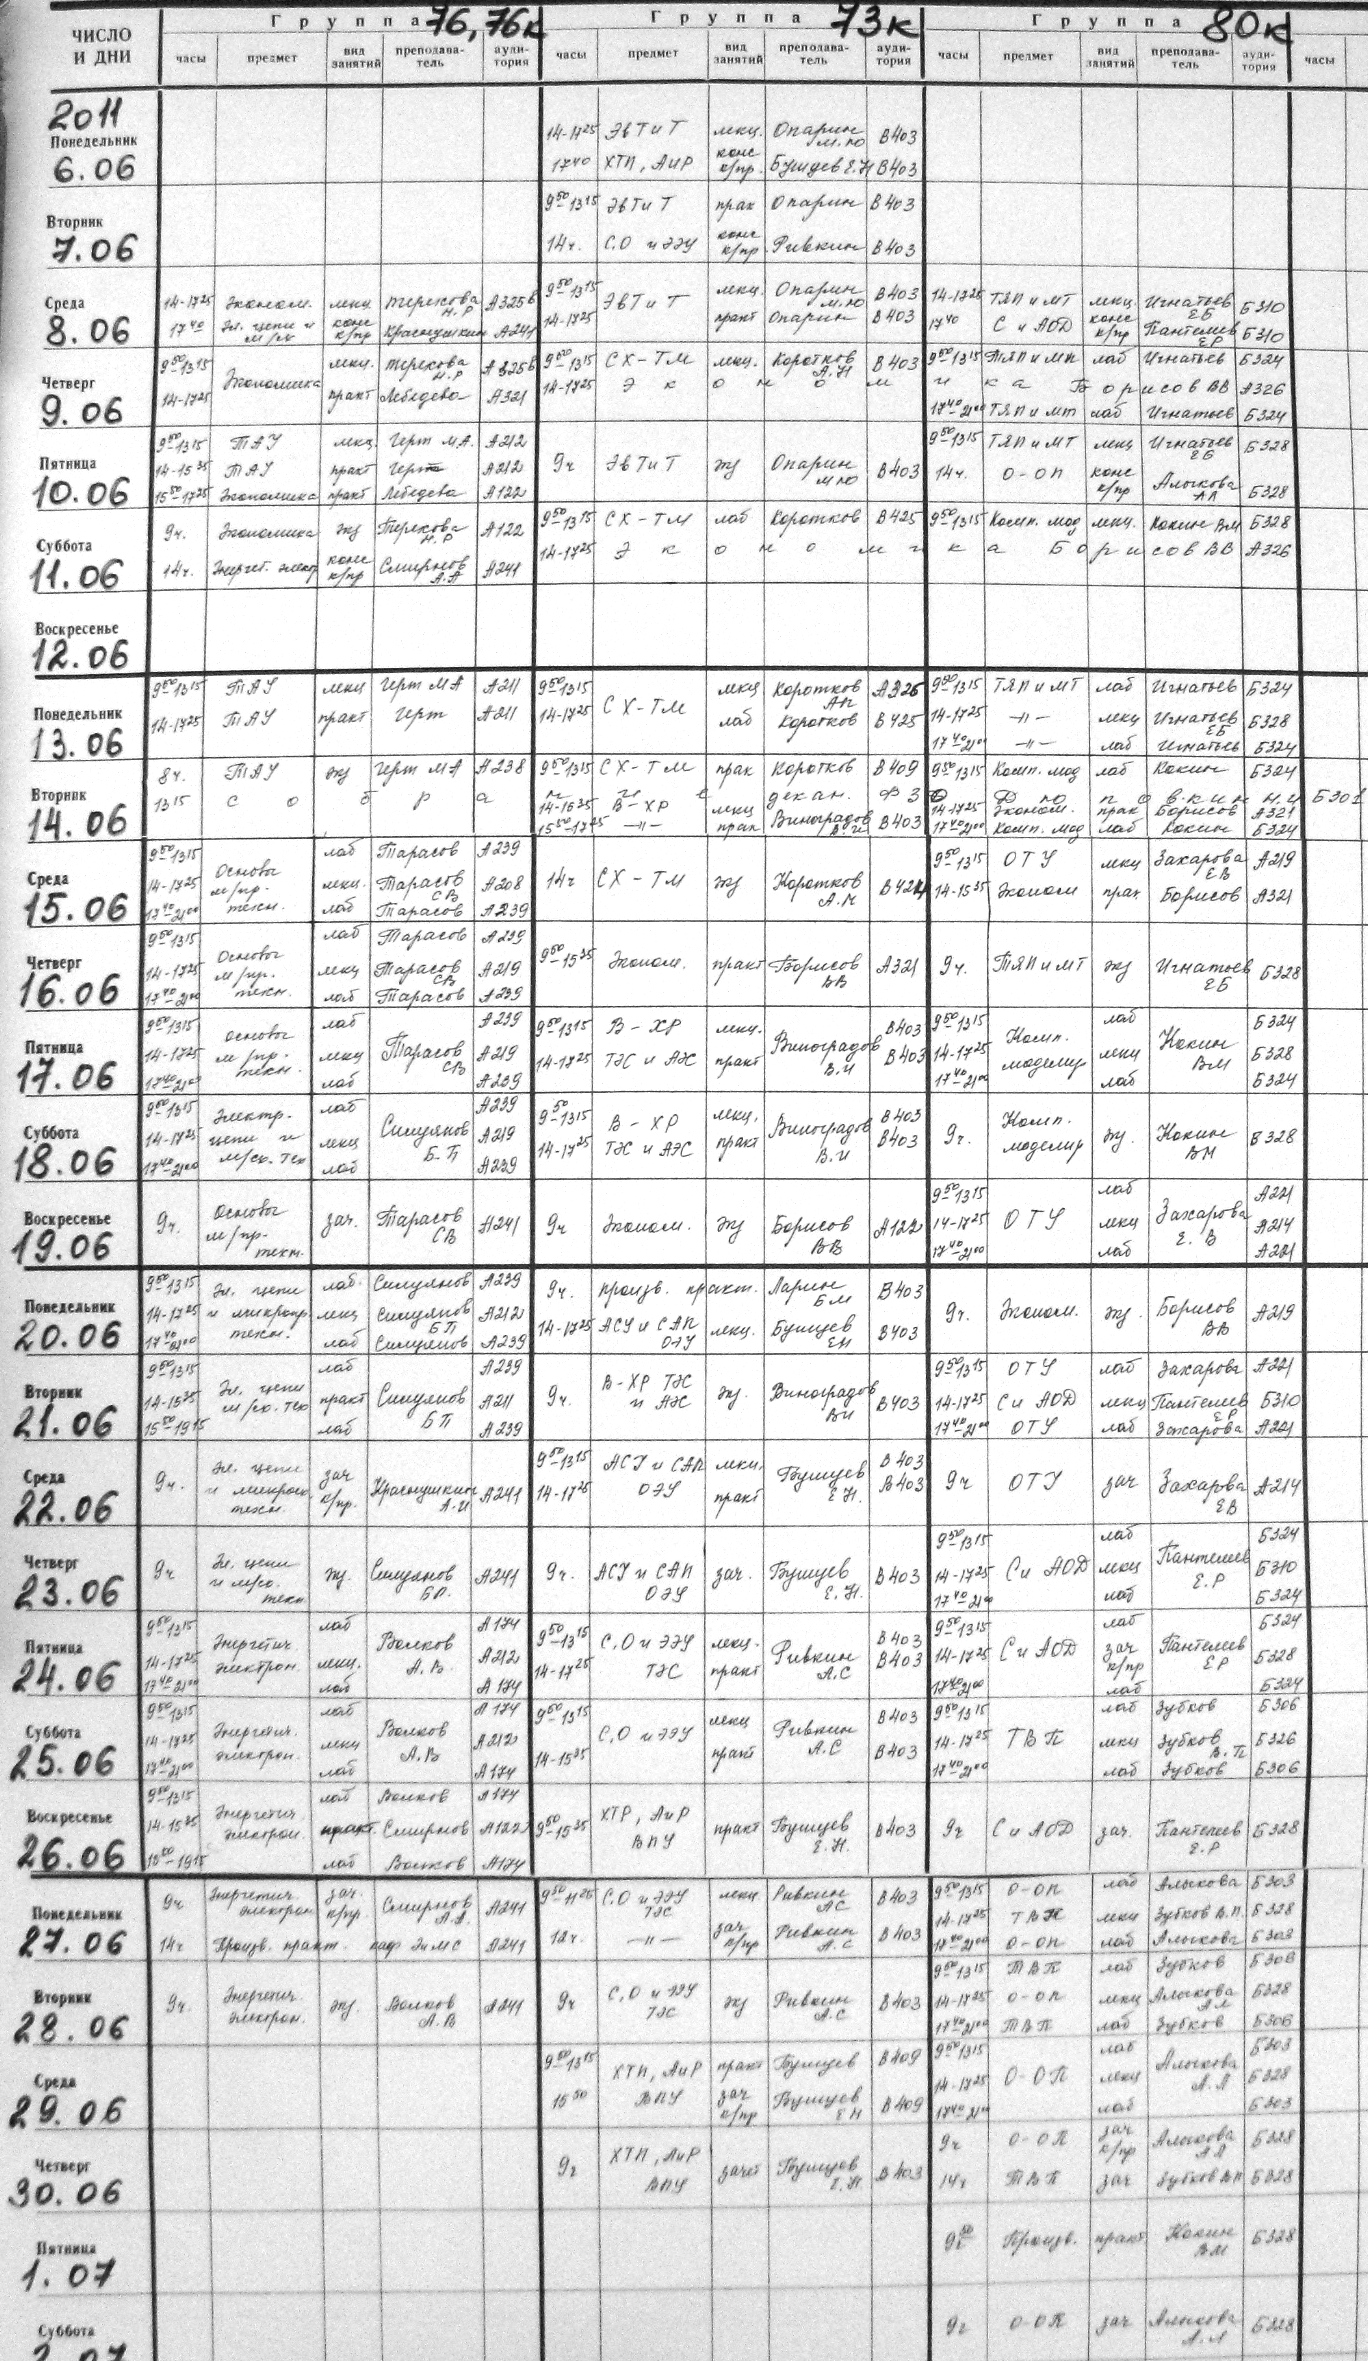 ЧИСЛО И ДНИ
Группа 76,76к Группа 73к Группа 80к
часы предмет вид занятий преподаватель аудитория часы предмет вид занятий преподаватель аудитория часы предмет вид занятий преподаватель аудитория часы
2011
Понедельник 6.06
14-17²⁵ ЭвТиТ лекц. Опарин М.Ю В403
17⁴⁰ ХТП, АиР конс к/пр. Бушуев Е.Н В403
Вторник 7.06
9⁵⁰-13¹⁵ ЭвТиТ прак Опарин В403
14ч. С,О и ЭЭУ конс к/пр. Ривкин В403
Среда 8.06
14-17²⁵ Эконом. лекц Терехова Н.Р А325б 9⁵⁰-13¹⁵ ЭвТиТ лекц. Опарин М.Ю В403 14-17²⁵ ТЯП и МТ лекц. Игнатьев ЕБ Б310
17⁴⁰ Эл. цепи и конс к/пр А241 14-17²⁵ практ Опарин В403 17⁴⁰ С и АОД конс к/пр Пантелеев ЕР Б310
Четверг 9.06
9⁵⁰-13¹⁵ Экономика лекц. Терехова Н.Р А325б 9⁵⁰-13¹⁵ СХ-ТМ лекц. Коротков А.Н В403 9⁵⁰-13¹⁵ лаб Игнатьев Б324
14-17²⁵ практ Лебедева А321 14-17²⁵ Экономика Борисов ВВ А326
17⁴⁰-21⁰⁰ ТЯП и МТ лаб Игнатьев Б324
Пятница 10.06
9⁵⁰-13¹⁵ ТАУ лекц Герт МА. А212 9⁵⁰-13¹⁵ ТЯП и МТ лекц Игнатьев ЕБ Б328
14-15³⁵ ТАУ практ Герт А212 9ч ЭвТиТ экз Опарин МЮ В403 14ч. О-ОП конс к/пр Алыкова АЛ Б328
15⁵⁰-17²⁵ Экономика практ Лебедева А122
Суббота 11.06
9ч. Экономика экз Терехова Н.Р А122 9⁵⁰-13¹⁵ СХ-ТМ лаб Коротков В425 9⁵⁰-13¹⁵ Комп. мод лекц. Кокин ВМ Б328
14ч. Энергет. элект конс к/пр Смирнов А.А А241 14-17²⁵ Экономика Борисов ВВ А326
Воскресенье 12.06
Понедельник 13.06
9⁵⁰-13¹⁵ ТАУ лекц Герт МА А211 9⁵⁰-13¹⁵ СХ-ТМ лекц Коротков А325 9⁵⁰-13¹⁵ ТЯП и МТ лаб Игнатьев Б324
14-17²⁵ ТАУ практ Герт А211 14-17²⁵ лаб Коротков В425 14-17²⁵ -"- лекц Игнатьев ЕБ Б328
17⁴⁰-21⁰⁰ -"- лаб Игнатьев Б324
Вторник 14.06
8ч. ТАУ экз Герт МА А238 9⁵⁰-13¹⁵ СХ-ТМ прак Коротков В409 9⁵⁰-13¹⁵ Комп. мод лаб Кокин Б324
13¹⁵ собрание декан. ФЗО Б301
14-15³⁵ В-ХР лекц Виноградов В.И В403 14-17²⁵ Эконом. прак Борисов А321
15⁵⁰-17²⁵ -"- прак 17⁴⁰-21⁰⁰ Комп. мод лаб Кокин Б324
Среда 15.06
9⁵⁰-13¹⁵ Основы м/пр. техн. лаб Тарасов А239 9⁵⁰-13¹⁵ ОТУ лекц Захарова ЕВ А219
14-17²⁵ лекц. Тарасов СВ А208 14ч СХ-ТМ экз Коротков А.Н В424 14-15³⁵ Эконом прак Борисов А321
17⁴⁰-21⁰⁰ лаб Тарасов А239
Четверг 16.06
9⁵⁰-13¹⁵ Основы м/пр. техн. лаб Тарасов А239
14-17²⁵ лекц Тарасов СВ А219 9⁵⁰-15³⁵ Эконом. практ Борисов ВВ А321 9ч. ТЯП и МТ экз Игнатьев ЕБ Б328
17⁴⁰-21⁰⁰ лаб Тарасов А239
Пятница 17.06
9⁵⁰-13¹⁵ Основы м/пр. техн. лаб Тарасов СВ А239 9⁵⁰-13¹⁵ В-ХР лекц. Виноградов В.И В403 9⁵⁰-13¹⁵ Комп. моделир лаб Кокин ВМ Б324
14-17²⁵ лекц А219 14-17²⁵ ТЭС и АЭС практ В403 14-17²⁵ лекц Б328
17⁴⁰-21⁰⁰ лаб А239 17⁴⁰-21⁰⁰ лаб Б324
Суббота 18.06
9⁵⁰-13¹⁵ Электр. цепи и лаб Силуянов Б.П А239 9⁵⁰-13¹⁵ В-ХР лекц, Виноградов В.И В403
14-17²⁵ лекц А219 14-17²⁵ ТЭС и АЭС практ В403 9ч. Комп. моделир экз. Кокин ВМ
17⁴⁰-21⁰⁰ лаб А239
Воскресенье 19.06
9⁵⁰-13¹⁵ лаб А221
9ч. Основы м/пр-техн. зач. Тарасов СВ А241 9ч Эконом. экз Борисов ВВ А122 14-17²⁵ ОТУ лекц Захарова Е.В А214
17⁴⁰-21⁰⁰ лаб А221
Понедельник 20.06
9⁵⁰-13¹⁵ Эл. цепи и микропр техн. лаб. Силуянов А239 9ч. произв. практ. Ларин БМ В403
14-17²⁵ лекц Силуянов БП А212 14-17²⁵ АСУ и САП ОЭУ лекц. Бушуев ЕН В403 9ч. Эконом. экз. Борисов ВВ А219
17⁴⁰-21⁰⁰ лаб Силуянов А239
Вторник 21.06
9⁵⁰-13¹⁵ Эл. цепи лаб Силуянов БП А239 9⁵⁰-13¹⁵ ОТУ лаб Захарова А221
14-15³⁵ практ А211 9ч. В-ХР ТЭС и АЭС экз. Виноградов ВИ В403 14-17²⁵ С и АОД лекц Пантелеев ЕР Б310
15⁵⁰-19¹⁵ лаб А239 17⁴⁰-21⁰⁰ ОТУ лаб Захарова А221
Среда 22.06
9ч. Эл. цепи зач к/пр. А.И А241 9⁵⁰-13¹⁵ АСУ и САП ОЭУ лекц, Бушуев Е.Н. В403 9ч ОТУ зач Захарова ЕВ А214
14-17²⁵ практ В403
Четверг 23.06
9⁵⁰-13¹⁵ лаб Б324
9ч Эл. цепи экз. Силуянов БП. А241 9ч. АСУ и САП ОЭУ зач. Бушуев Е.Н. В403 14-17²⁵ С и АОД лекц Пантелеев Е.Р Б310
17⁴⁰-21⁰⁰ лаб Б324
Пятница 24.06
9⁵⁰-13¹⁵ Энергетич. электрон. лаб Волков А.В. А174 9⁵⁰-13¹⁵ С,О и ЭЭУ ТЭС лекц. Ривкин А.С В403 9⁵⁰-13¹⁵ С и АОД лаб Пантелеев ЕР Б324
14-17²⁵ лекц. А212 14-17²⁵ практ В403 14-17²⁵ зач к/пр Б328
17⁴⁰-21⁰⁰ лаб А174 17⁴⁰-21⁰⁰ лаб Б324
Суббота 25.06
9⁵⁰-13¹⁵ Энергетич. электрон. лаб Волков А.В А174 9⁵⁰-13¹⁵ С,О и ЭЭУ лекц Ривкин А.С В403 9⁵⁰-13¹⁵ ТВП лаб Зубков Б306
14-17²⁵ лекц А212 14-15³⁵ практ В403 14-17²⁵ лекц Зубков В.П Б326
17⁴⁰-21⁰⁰ лаб А174 17⁴⁰-21⁰⁰ лаб Зубков Б306
Воскресенье 26.06
9⁵⁰-13¹⁵ Энергетич. электрон. лаб Волков А174
14-15³⁵ практ. Смирнов А122 9⁵⁰-15³⁵ ХТР, АиР ВПУ практ Бушуев Е.Н. В403 9ч С и АОД зач. Пантелеев Е.Р Б328
15⁵⁰-19¹⁵ лаб Волков А174
Понедельник 27.06
9ч Энергетич. электрон зач. к/пр. Смирнов А.А. А241 9⁵⁰-11²⁵ С,О и ЭЭУ ТЭС лекц Ривкин АС В403 9⁵⁰-13¹⁵ О-ОП лаб Алыкова Б303
14ч Произв. практ. каф ЭиМС А241 12ч. -"- зач к/пр Ривкин А.С В403 14-17²⁵ ТВП лекц Зубков В.П. Б328
17⁴⁰-21⁰⁰ О-ОП лаб Алыкова Б303
Вторник 28.06
9⁵⁰-13¹⁵ ТВП лаб Зубков Б306
9ч. Энергетич. электрон. экз. Волков А.В А241 9ч С,О и ЭЭУ ТЭС экз Ривкин А.С В403 14-17²⁵ О-ОП лекц Алыкова АЛ Б328
17⁴⁰-21⁰⁰ ТВП лаб Зубков Б306
Среда 29.06
9⁵⁰-13¹⁵ ХТП, АиР ВПУ практ Бушуев В409 9⁵⁰-13¹⁵ О-ОП лаб Алыкова А.Л Б303
15⁵⁰ зач к/пр Бушуев ЕН В409 14-17²⁵ лекц Б328
17⁴⁰-21⁰⁰ лаб Б303
Четверг 30.06
9ч ХТП, АиР ВПУ зачет Бушуев Е.Н В403 9ч О-ОП зач к/пр Алыкова АЛ Б328
14ч ТВП зач Зубков ВП Б328
Пятница 1.07
Произв. практ Кокин ВМ Б328
Суббота 2.07
9ч О-ОП зач Алыкова А.Л Б328